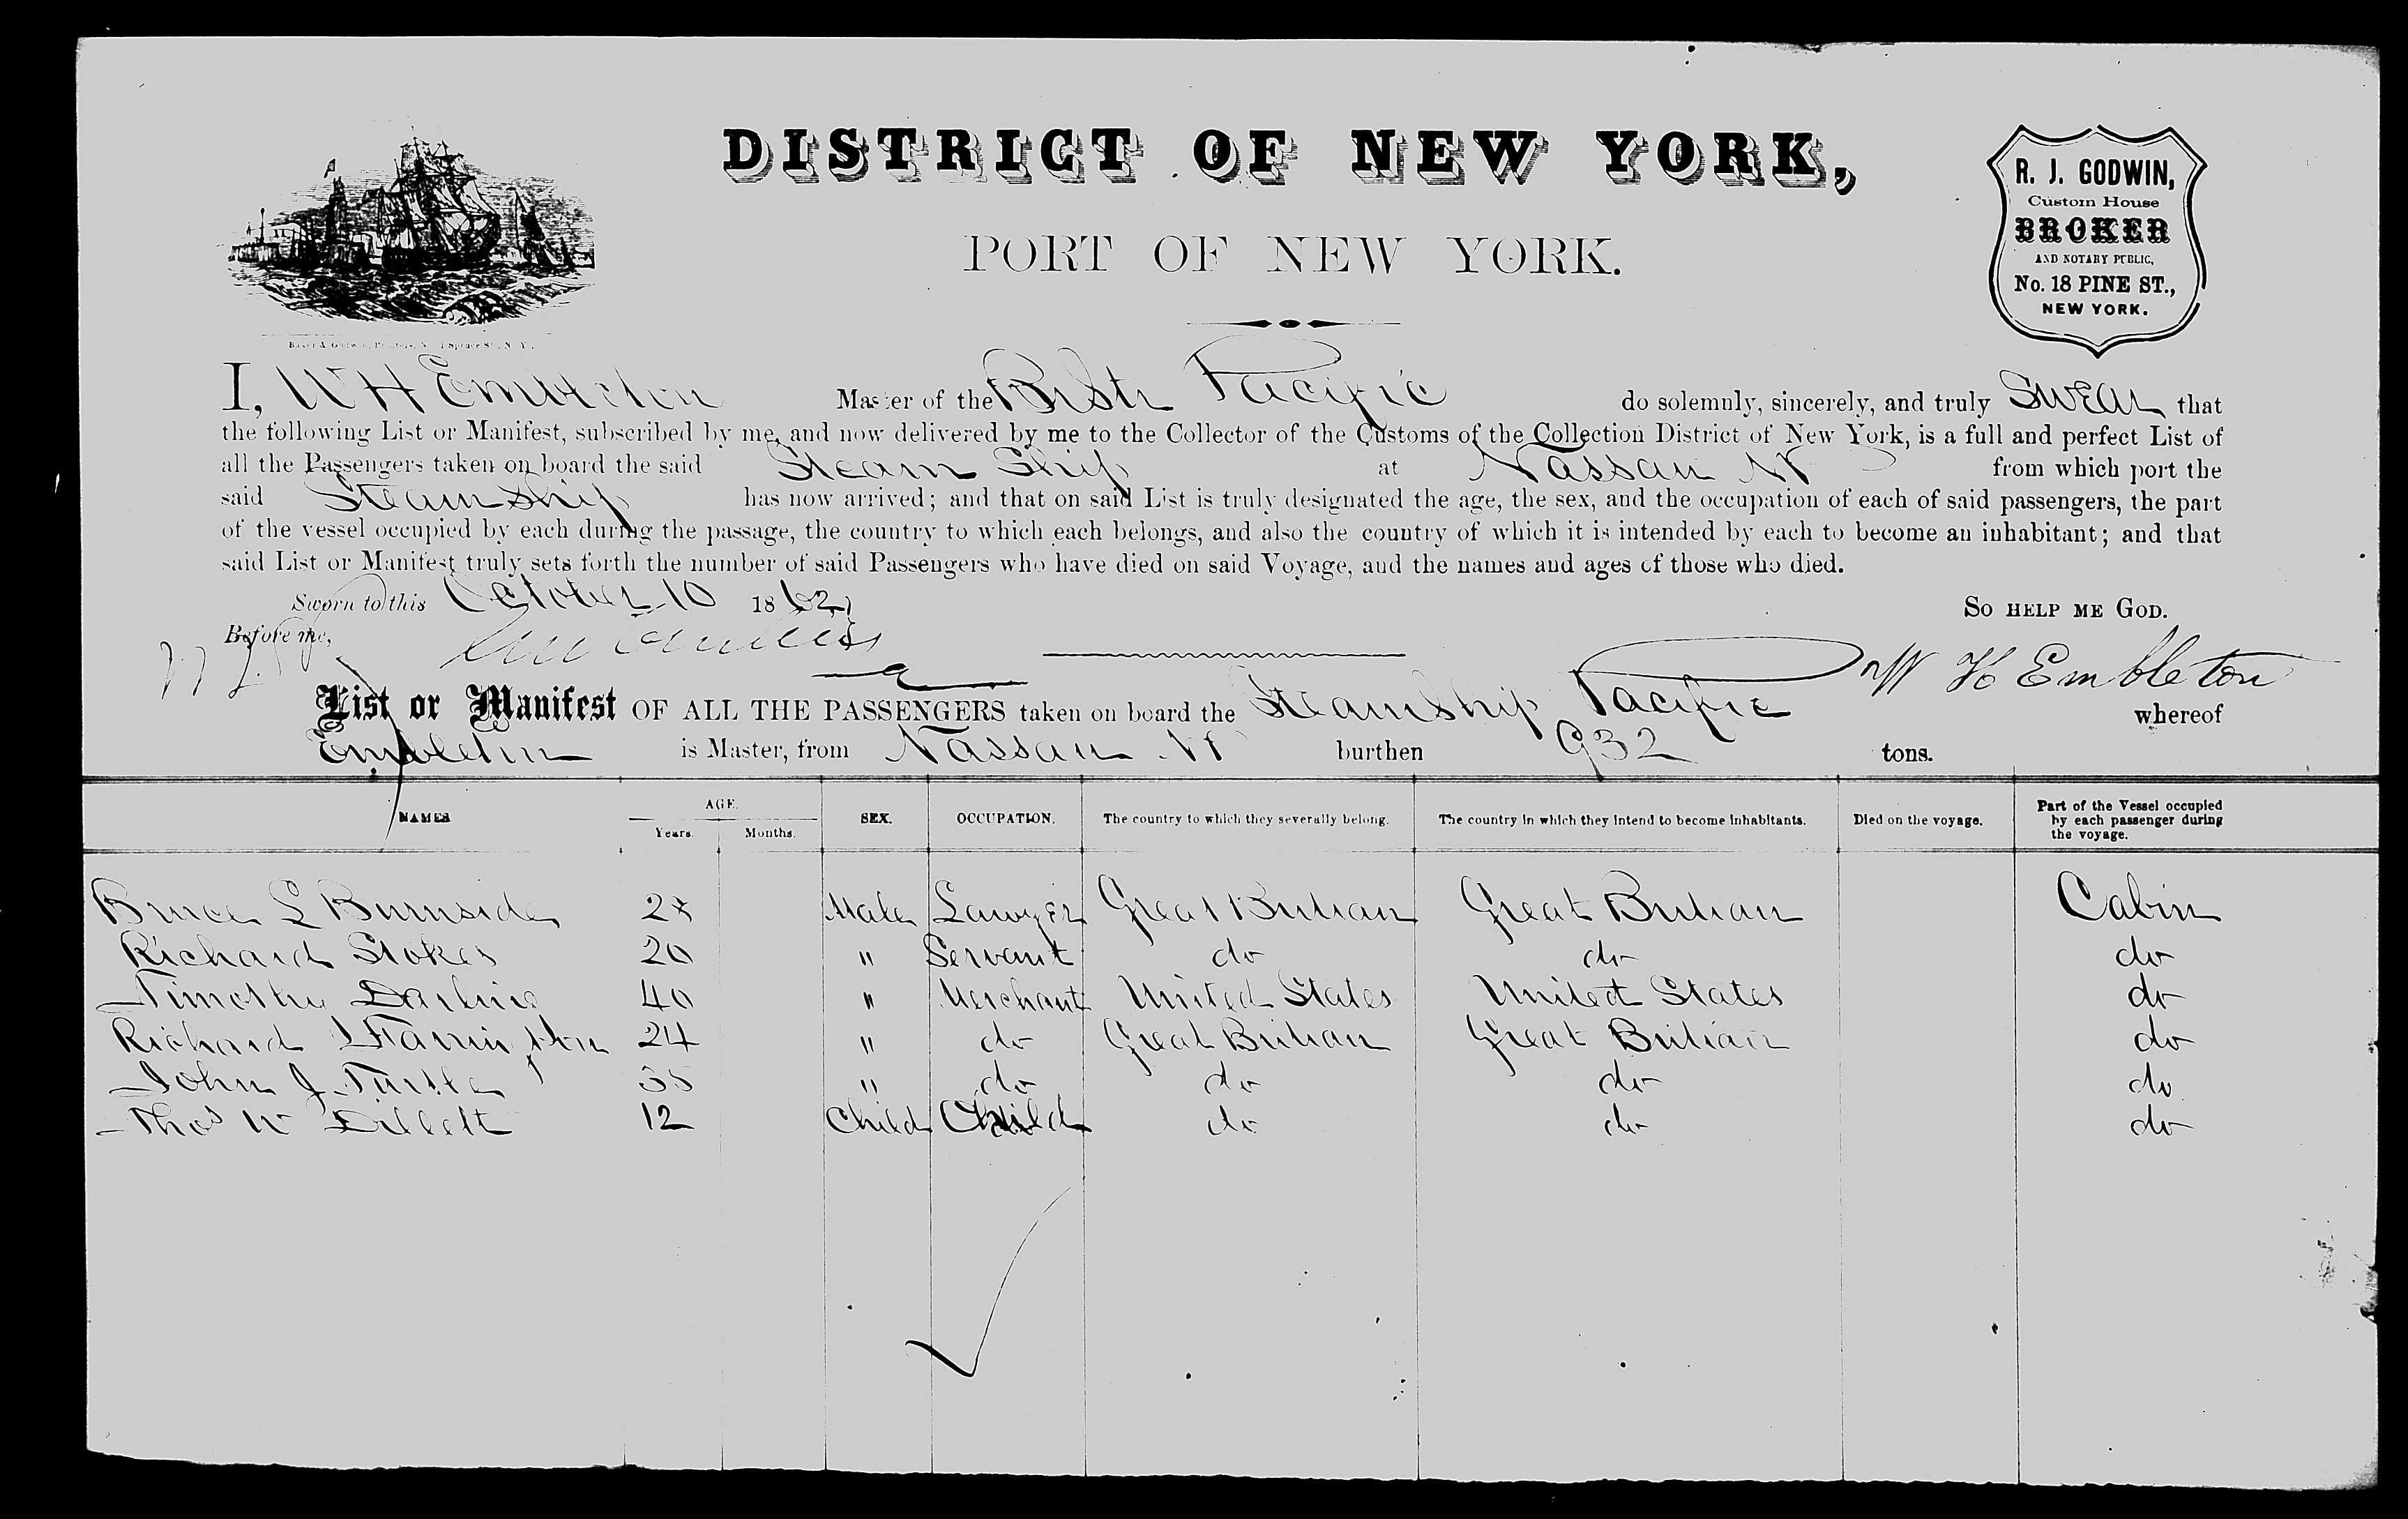 DISTRICT OF NEW YORK,
PORT OF NEW YORK.
R. J. GODWIN,
Custom House
BROKER
AND NOTARY PUBLIC,
No. 18 PINE ST.,
NEW YORK.
Baker & Godwin, Printers, Spruce St., N. Y.
I, W H Embleton Master of the Br Str Pacific do solemnly, sincerely, and truly Swear that
the following List or Manifest, subscribed by me, and now delivered by me to the Collector of the Customs of the Collection District of New York, is a full and perfect List of
all the Passengers taken on board the said Steam Ship at Nassau NP from which port the
said Steamship has now arrived; and that on said List is truly designated the age, the sex, and the occupation of each of said passengers, the part
of the vessel occupied by each during the passage, the country to which each belongs, and also the country of which it is intended by each to become an inhabitant; and that
said List or Manifest truly sets forth the number of said Passengers who have died on said Voyage, and the names and ages of those who died.
Sworn to this October 10 1862 SO HELP ME GOD.
Before me,
W H Embleton
List or Manifest OF ALL THE PASSENGERS taken on board the Steamship Pacific whereof
Embleton is Master, from Nassau NP burthen 932 tons.
NAMES AGE. Years. Months. SEX. OCCUPATION. The country to which they severally belong. The country in which they intend to become inhabitants. Died on the voyage. Part of the Vessel occupied by each passenger during the voyage.
Bruce L Burnside 28 Male Lawyer Great Britian Great Britian Cabin
Richard Stokes 20 " Servant do do do
Timothy Darling 40 " Merchant United States United States do
Richard 24 " do Great Britian Great Britian do
John J Turtle 35 " do do do do
Thos W Dillett 12 Child Child do do do